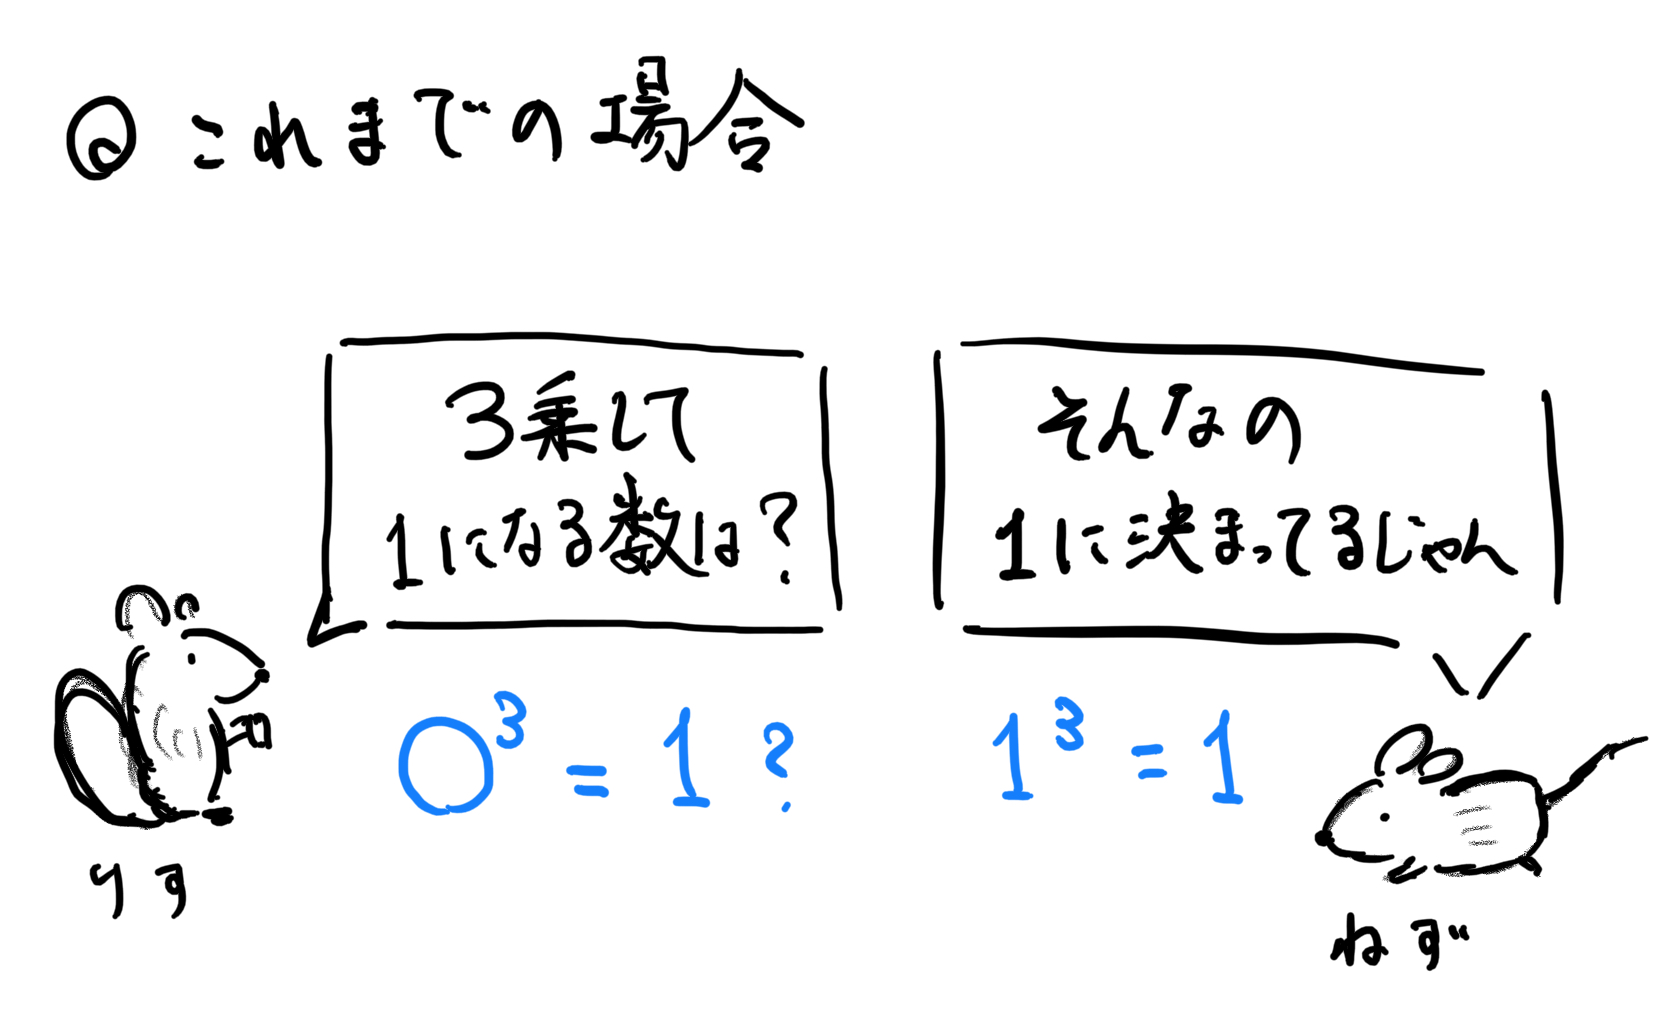 ◎ これまでの場合
3乗して
1になる数は?
そんなの
1に決まってるじゃん
○³ = 1 ?
1³ = 1
りす
ねず